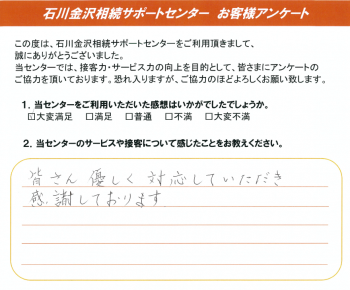 石川金沢相続サポートセンター お客様アンケート
この度は、石川金沢相続サポートセンターをご利用頂きまして、
誠にありがとうございました。
当センターでは、接客力・サービス力の向上を目的として、皆さまにアンケートの
ご協力を頂いております。恐れ入りますが、ご協力のほどよろしくお願い致します。
1. 当センターをご利用いただいた感想はいかがでしたでしょうか。
☑大変満足 □満足 □普通 □不満 □大変不満
2. 当センターのサービスや接客について感じたことをお教えください。
皆さん 優しく 対応していただき
感謝しております